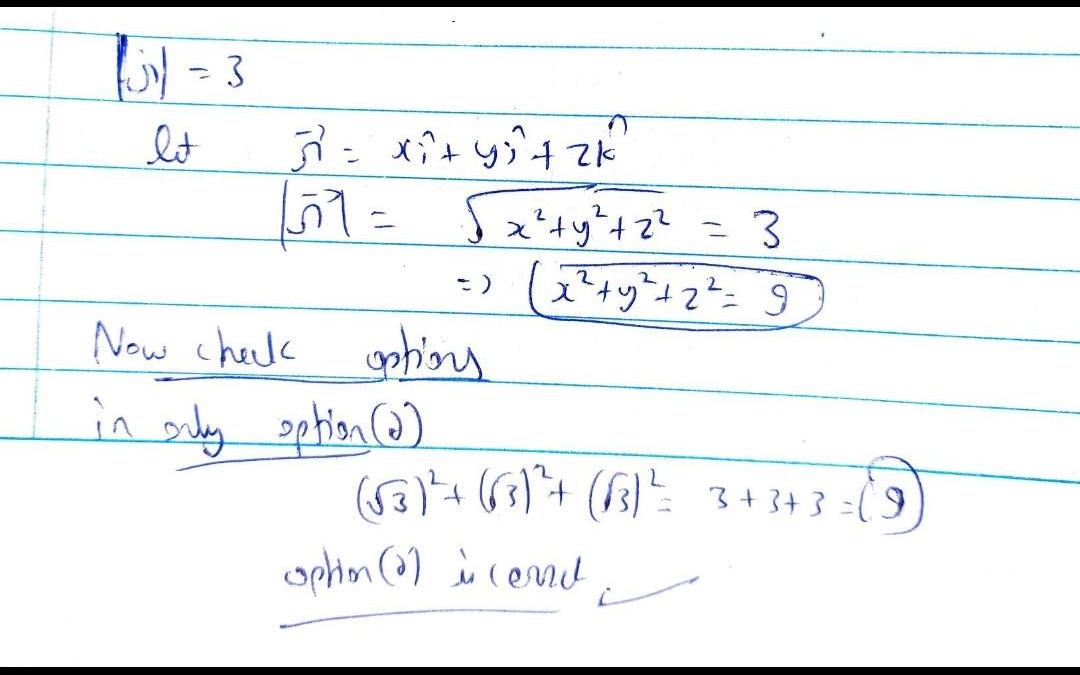 |r⃗| = 3
let r⃗ = xî + yĵ + zk̂
|r⃗| = √x²+y²+z² = 3
=> (x²+y²+z² = 9)
Now check options
in only option(2)
(√3)² + (√3)² + (√3)² = 3+3+3 = 9
option(2) is correct.